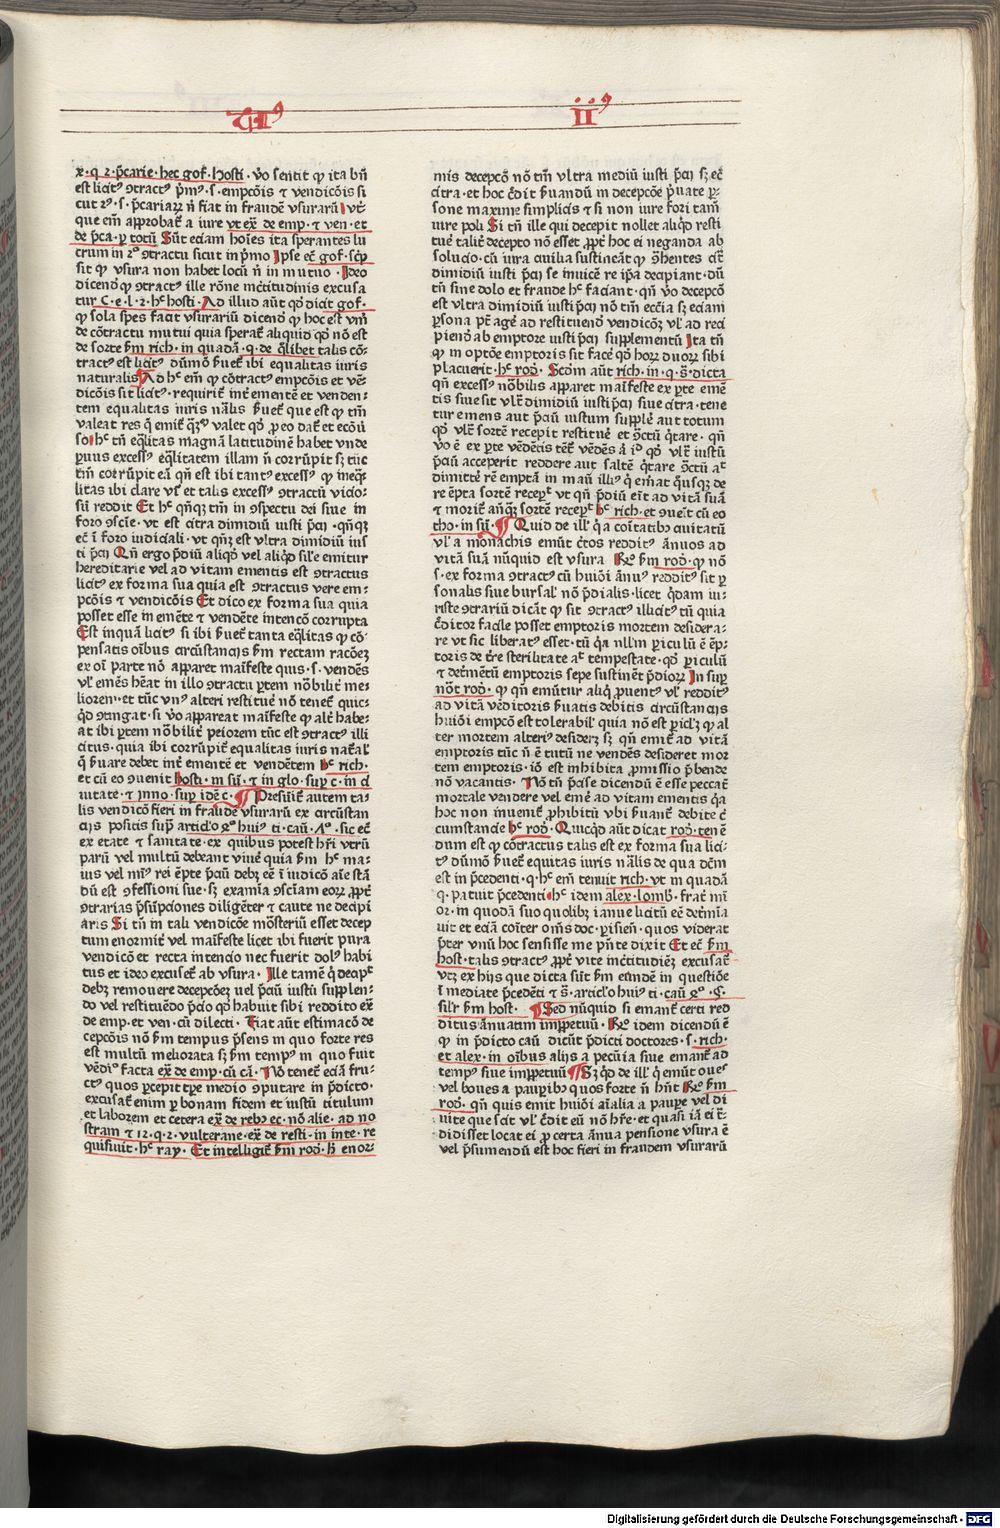 IIꝰ
x·q̄ 2· p̄carie· hec gof. Hosti· v̊o sentit ꝙ ita bn̄
est licitꝰ ꝯtractꝰ p̄mꝰ·s·empcōis ⁊ vendicōis si
cut 2ꝰ·s·p̄cariaꝝ n̄ fiat in fraudē vsuraꝝ vtr̄
que em̄ approbat̄ a iure vt ex̄ de emp· ⁊ ven·et
de p̄ca·ꝑ totū Sūt eciam hoīes ita sperantes lu
crum in 2º ꝯtractu sicut in p̄mo Ipse ec̄ gof·sc̄p
sit ꝙ vsura non habet locū n̄ in mutuo· Ideo
dicend̄ ꝙ ꝯtractꝰ ille rōne īncertitudinis excusa
tur C·e·l·2·hͨ hosti· Ad illud aūt qd̄ dicit gof·
ꝙ sola spes facit vsurariū dicend̄ ꝙ hoc est vm̄
de cōtractu mutui quia sperat̄ aliquid qd̄ nō est
de sorte ẜm rich·in quadā·q·de qͥlibet talis cō-
tractꝰ est licitꝰ dūmō ẜuet̄ ibi equalitas iuris
naturalis Ad hͨ em̄ ꝙ cōtractꝰ empcōis et vē-
dicōis sit licitꝰ·requirit̄ int̄ ementē et venden-
tem equalitas iuris nālis ẜuet̄ que est ꝙ tm̄
valeat res q̄ emit̄ qͣꝫꝰ valet qd̄ ꝓ eo dat̄ et ecōū
so hͨ tn̄ eqͣlitas magnā latitudinē habet vnde
ꝑuus excessꝰ eqͣlitatem illam n̄ corrūpit sꝫ tūc
tm̄ corrūpit eā qn̄ est ibi tantꝰ excessꝰ ꝙ ineqͣ-
litas ibi clare vr̄ et talis excessꝰ ꝯtractū vicio-
sū reddit Et hͨ qn̄qꝫ tm̄ in ꝯspectu dei siue in
foro ꝯscīe·vt est citra dimidiū iusti p̄cij·qn̄qꝫ
ec̄ ī foro iudiciali·vt qn̄qꝫ est vltra dimidiū ius
ti p̄cij Qn̄ ergo p̄diū aliqd̄ vel aliqd̄ sil̄e emitur
hereditarie vel ad vitam ementis est ꝯtractus
licitꝰ ex forma sua quia est ꝯtractus vere em-
pcōis ⁊ vendicōis Et dico ex forma sua quia
posset esse in emēte ⁊ vendēte intencō corrupta
Est inquā licitꝰ si ibi ẜuet̄ tanta eqͣlitas ꝙ cō-
pensatis oībus circūstancijs ẜm rectam racōeꝫ
ex oī parte nō apparet maīfeste quis·s·vendēs
vl̄ emēs hēat in illo ꝯtractu ꝑtem nōbilit̄ me-
liorem·et tūc vnꝰ alteri restituē nō tenet̄ quic-
qd̄ ꝯtingat·si v̊o appareat maīfeste ꝙ alt̄ habe-
at ibi ꝑtem nōbilit̄ peiorem tūc est ꝯtractꝰ illi
citus·quia ibi corrūpit̄ equalitas iuris nat̄al̄
q̄ ẜuare debet int̄ ementē et vendētem hͨ rich·
et cū eo ꝯuenit hosti·in sū·⁊ in glo·suꝑ c·in ci
uitate·⁊ Inno·suꝑ idē c·¶Presūit̄ autem ta-
lis vendicō fieri in fraudē vsuraꝝ ex circūstan
cijs positis supͣ artic̄lo 2º huiꝰ ti·caū·4º·sic ec̄
ex etate ⁊ sanitate·ex quibus potest hr̄i vtrū
parū vel multū debeant viuē quia ẜm hͨ ma-
ius vel minꝰ rei ēpte p̄cīu debꝫ eē ī iudicō aīe stā
dū est ꝯfessioni sue·sꝫ examīa ꝯscīam eoꝝ ꝓpt̄
ꝯtrarias p̄sūpciones diligēter ⁊ caute ne decipi
aris Si tn̄ in tali vendicōe mōsteriū esset decep
tum enormit̄ vel maīfeste licet ibi fuerit pura
vendicō et recta intencio nec fuerit dolꝰ habi
tus et ideo excuset̄ ab vsura· Ille tamē q̄ deapͭ
debꝫ remouere decepcōeꝫ uel p̄cīu iustū supplen-
do vel restituēdo p̄dio qd̄ habuit sibi reddito ex̄
de emp·et ven·cū dilecti· Fiat aūt estimacō de
cepcōis nō ẜm tempus p̄sens in quo forte res
est multū meliorata sꝫ ẜm tempꝰ in quo fuit
vēdio facta ex̄ de emp·cū cā· Nō tenet̄ eciā fru-
ctꝰ quos ꝑcepit tꝑe medio ꝯputare in p̄dicto·
excusat̄ enim ꝑ bonam fidem et iustū titulum
et laborem et cetera ex̄ de rebꝫ ec·nō alie·ad no
stram ⁊ 12·q·2·vulterane·ex̄ de resti·in inte·re
quisiuit·hͨ ray· Et intelligit̄ ẜm rod·ẜi enor-
mis decepcō nō tm̄ vltra mediū iusti p̄cij sꝫ ec̄
citra·et hoc c̄dit ẜuandū in decepcōe p̄uate ꝑ-
sone maxime simplicis ⁊ si non iure fori tam̄
iure poli Si tn̄ ille qui decepit nollet aliqd̄ resti
tuē talit̄ decepto nō esset ꝓpt̄ hoc ei neganda ab
solucio·cū iura ciuilia sustineāt ꝙ ꝯhentes citͣ
dimidiū iusti p̄cij se inuicē re ip̄a decipiant·dū
tn̄ sine dolo et fraude hͨ faciant·qn̄ v̊o decepcō
est vltra dimidiū iusti p̄cij nō tm̄ ecc̄ia sꝫ eciam
ꝑsona pt̄ agē ad restituend̄ vendicōꝫ vl̄ ad reci
piend̄ ab emptore iusti p̄cij supplementū Ita tn̄
ꝙ in optōe emptoris sit facē qd̄ hoꝝ duoꝝ sibi
placuerit·hͨ rod· Scd̄m aūt rich·in·q·s̄·dicta
qn̄ excessꝰ nōbilis apparet maīfeste ex ꝑte emē
tis siue sit vlt̄ dimidiū iusti p̄cij siue citra·tene
tur emens aut p̄cīu iustum supplē aut totum
qd̄ vlt̄ sortē recepit restituē et ꝯctū qͥtare·qn̄
v̊o ē ex ꝑte vēdētis tēt̄ vēdēs ā iº qd̄ vlt̄ iustū
p̄cīu acceperit reddere aut saltē qͥtare ꝯctū aͭ
dimittē rē emptā in maū illiꝰ q̄ emat qͦusqꝫ de
re ēpta sortē recepͭ vt qn̄ p̄diū eīt̄ ad vitā suā
⁊ morit̄ an̄qꝫ sortē recepͭ hͨ rich·et ꝯueīt cū eo
tho·in sū·¶Quid de ill̄ q̄ a cōitatibꝫ ciuitatū
vl̄ a monachis emūt c̄tos redditꝰ ānuos ad
vitā suā nūquid est vsura Rº ẜm rod·ꝙ nō
·s·ex forma ꝯtractꝰ cū huiōi ānuꝰ redditꝰ sit ꝑ
sonalis siue bursal̄ nō p̄dialis·licet qͥdam iu-
riste ꝯtrariū dicāt ꝙ sit ꝯtractꝰ illicitꝰ tū quia
c̄ditor facile posset emptoris mortem desidera-
re vt sic liberatꝰ esset·tū qͥa nll̄m ꝑiculū ē ēp-
toris de tr̄e sterilitate aͭ tempestate·qd̄ ꝑiculū
⁊ detͥmētū emptoris sepe sustinēt p̄dioꝝ In suꝑ
nōt̄ rod·ꝙ qn̄ emūtur aliqͣ ꝓuentꝰ vl̄ redditꝰ
ad vitā vēditoris ẜuatis debitis circūstancijs
huiōi empcō est tolerabil̄ quia nō est ꝑicl̄ꝫ ꝙ al
ter mortem alteriꝰ desideꝫ sꝫ qn̄ emit̄ ad vitā
emptoris tūc n̄ ē tutū ne vendēs desideret mor
tem emptoris·iō est inhibita ꝓmissio p̄bende
nō vacantis· Nō tn̄ p̄cise dicendū ē esse peccat̄
mortale vendere vel emē ad vitam ementis qͥa
hoc non inuenit̄ ꝓhibitū vbi ẜuant̄ debite c̄
cumstancie hͨ rod· Quicqͥd aūt dicat rod·ten ē
dum est ꝙ cōtractus talis est ex forma sua lici-
tꝰ dūmō ẜuet̄ equitas iuris nālis de qua dc̄m
est in p̄cedenti·q·hͨ em̄ tenuit rich·vt in quadā
q·patuit p̄cedenti hͨ idem alex·lomb·frat̄ mi
or·in quodā suo quolibꝫ ianue licitū eē det̄mīa
uit et eciā cōiter om̄s doc·ꝑisien̄·quos viderat
p̄ter vnū hoc sensisse me p̄nte dixit Et ec̄ ẜm
host·talis ꝯtractꝰ ꝓpt̄ vite īncertitudiēꝫ excusat̄
vtꝫ ex hijs que dicta sūt ẜm eundē in questiōe
ī mediate p̄cedēti ⁊ s̄·artic̄lo huiꝰ ti·caū 2º·C·
sil̄r ẜm host· ¶Sed nūquid si emant̄ certi red
ditus ānuatim imꝑpetuū· Rº idem dicendū ē
ꝙ in p̄dicto caū dicūt p̄dicti doctores·s·rich·
et alex·in oībus alijs a pecūia siue emant̄ ad
tempꝰ siue imꝑpetuū ¶Sꝫ qd̄ de ill̄ q̄ emūt oues
vel boues a pauꝑibꝫ quos forte n̄ hn̄t Rº ẜm
rod·qn̄ quis emit huiōi aīalia a pauꝑe vel di
uite que scit vl̄ c̄dit eū nō hr̄e·et quasi iā ei tͣ-
didisset locat ei ꝓ certa ānua pensione vsura ē
vel p̄sumendū est hoc fieri in fraudem vsuraꝝ
Digitalisierung gefördert durch die Deutsche Forschungsgemeinschaft · DFG